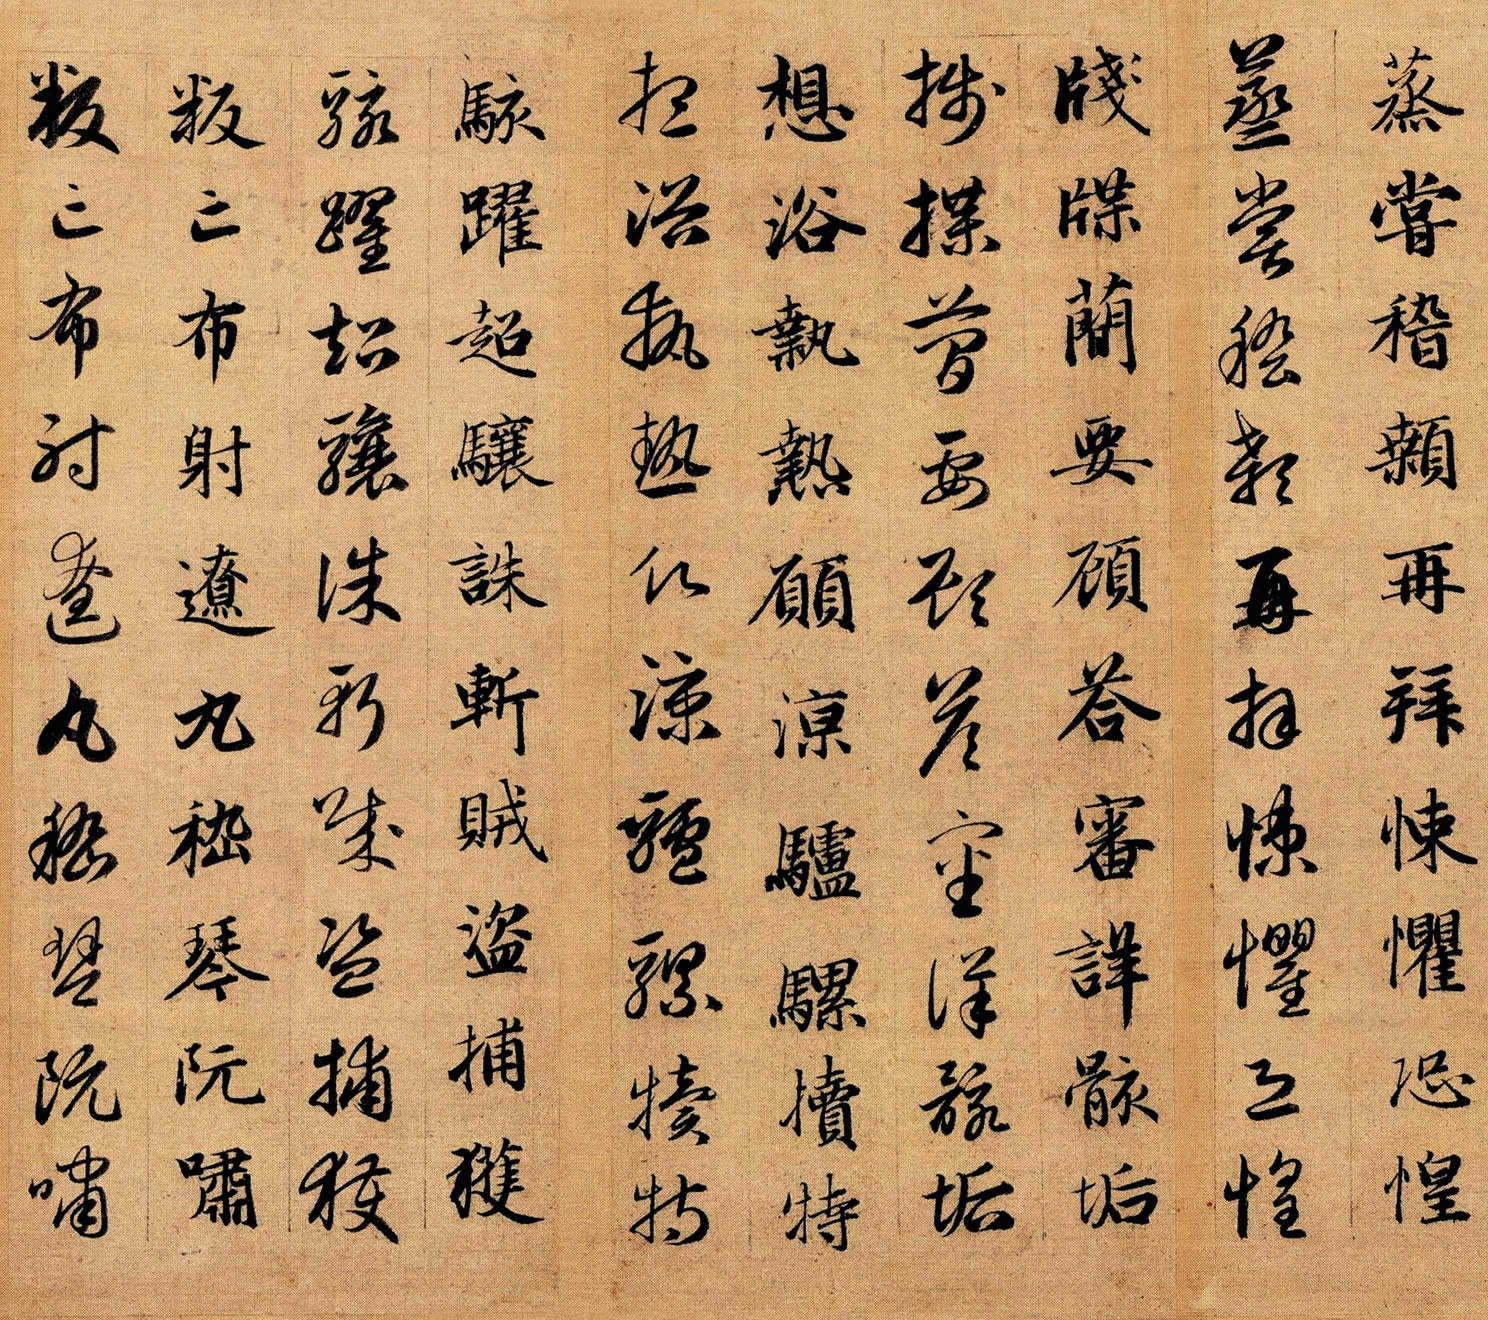 蒸嘗稽顙再拜悚懼恐惶
蒸嘗稽顙再拜悚懼恐惶
牋牒簡要顧答審詳骸垢
牋牒簡要顧答審詳骸垢
想浴執熱願涼驢騾犢特
想浴執熱願涼驢騾犢特
駭躍超驤誅斬賊盜捕獲
駭躍超驤誅斬賊盜捕獲
叛亡布射遼丸嵇琴阮嘯
叛亡布射遼丸嵇琴阮嘯